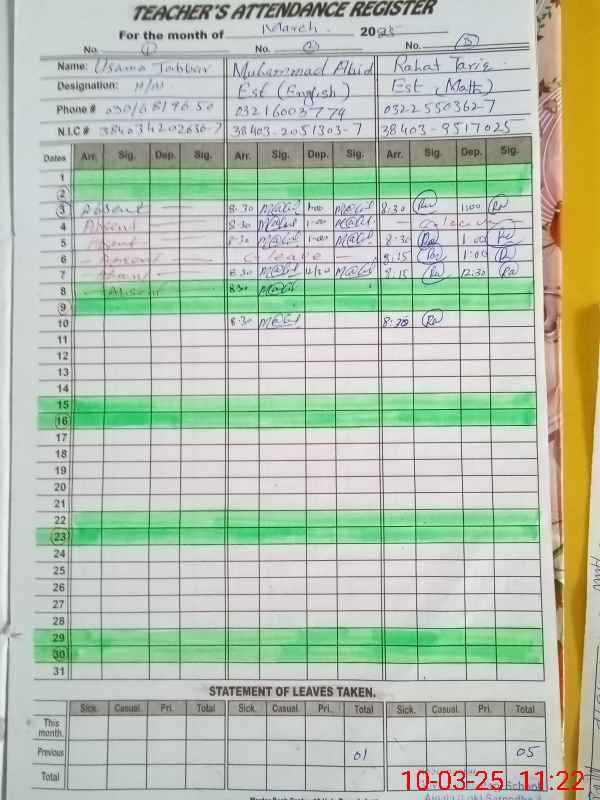 TEACHER'S ATTENDANCE REGISTER
For the month of March 2025
No. 1 No. 2 No. 3
Name: Usama Jabbar Muhammad Abid Rahat Tariq
Designation: H/M Est (English) Est (Math)
Phone # 03016819650 03216003779 0322-5503627
N.I.C # 3840342026367 38403-2051303-7 38403-9517025
Dates Arr. Sig. Dep. Sig. Arr. Sig. Dep. Sig. Arr. Sig. Dep. Sig.
1
2
3 Absent 8:30 1:00 8:30 1:00
4 Absent 8:30 1:00 C leave
5 Absent 8:30 1:00 8:30 1:00
6 Absent C leave 8:15 1:00
7 Absent 8:30 12/30 8:15 12:30
8 Absent 8:30
9
10 8:30 8:30
11
12
13
14
15
16
17
18
19
20
21
22
23
24
25
26
27
28
29
30
31
STATEMENT OF LEAVES TAKEN.
Sick. Casual. Pri. Total Sick. Casual. Pri. Total Sick. Casual. Pri. Total
This month.
Previous 01 05
Total
10-03-25 11:22